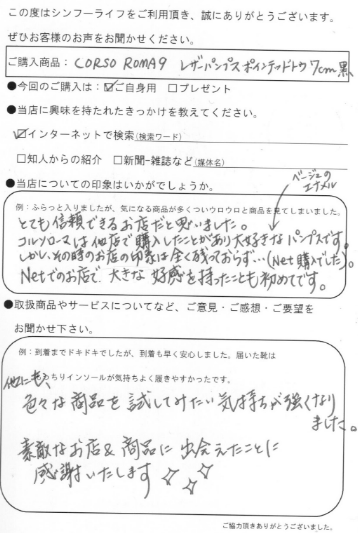 この度はシンフーライフをご利用頂き、誠にありがとうございます。
ぜひお客様のお声をお聞かせください。
ご購入商品： CORSO ROMA9 レザーパンプス ポインテッドトウ 7cm 黒
●今回のご購入は：☑ご自身用 □プレゼント
●当店に興味を持たれたきっかけを教えてください。
☑インターネットで検索(検索ワード)
□知人からの紹介 □新聞-雑誌など(媒体名)
●当店についての印象はいかがでしょうか。
ベージュの
エナメル
例：ふらっと入りましたが、気になる商品が多くついウロウロと商品を見てしまいました。
とても信頼できるお店だと思いました。
コルソローマは他店で購入したことがあり大好きなパンプスです。
しかしその時のお店の印象は全く残っておらず…(Net購入でした)。
Netでのお店で、大きな好感を持ったことも初めてです。
●取扱商品やサービスについてなど、ご意見・ご感想・ご要望を
お聞かせ下さい。
例：到着までドキドキでしたが、到着も早く安心しました。届いた靴は
ちりインソールが気持ちよく履きやすかったです。
他にも、
色々な商品を試してみたい気持ちが強くなり
ました。
素敵なお店&商品に出会えたことに
感謝いたします☆☆☆
ご協力頂きありがとうございました。